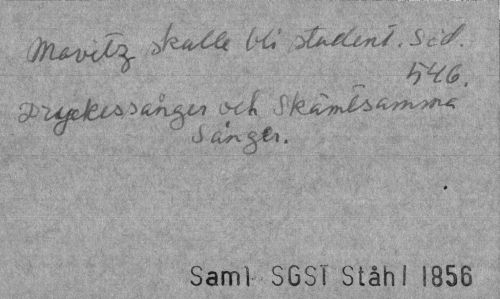 Movitz skulle bli student. Sid.
546.
Dryckessånger och Skämtsamma
Sånger.
Saml SGST Ståhl 1856